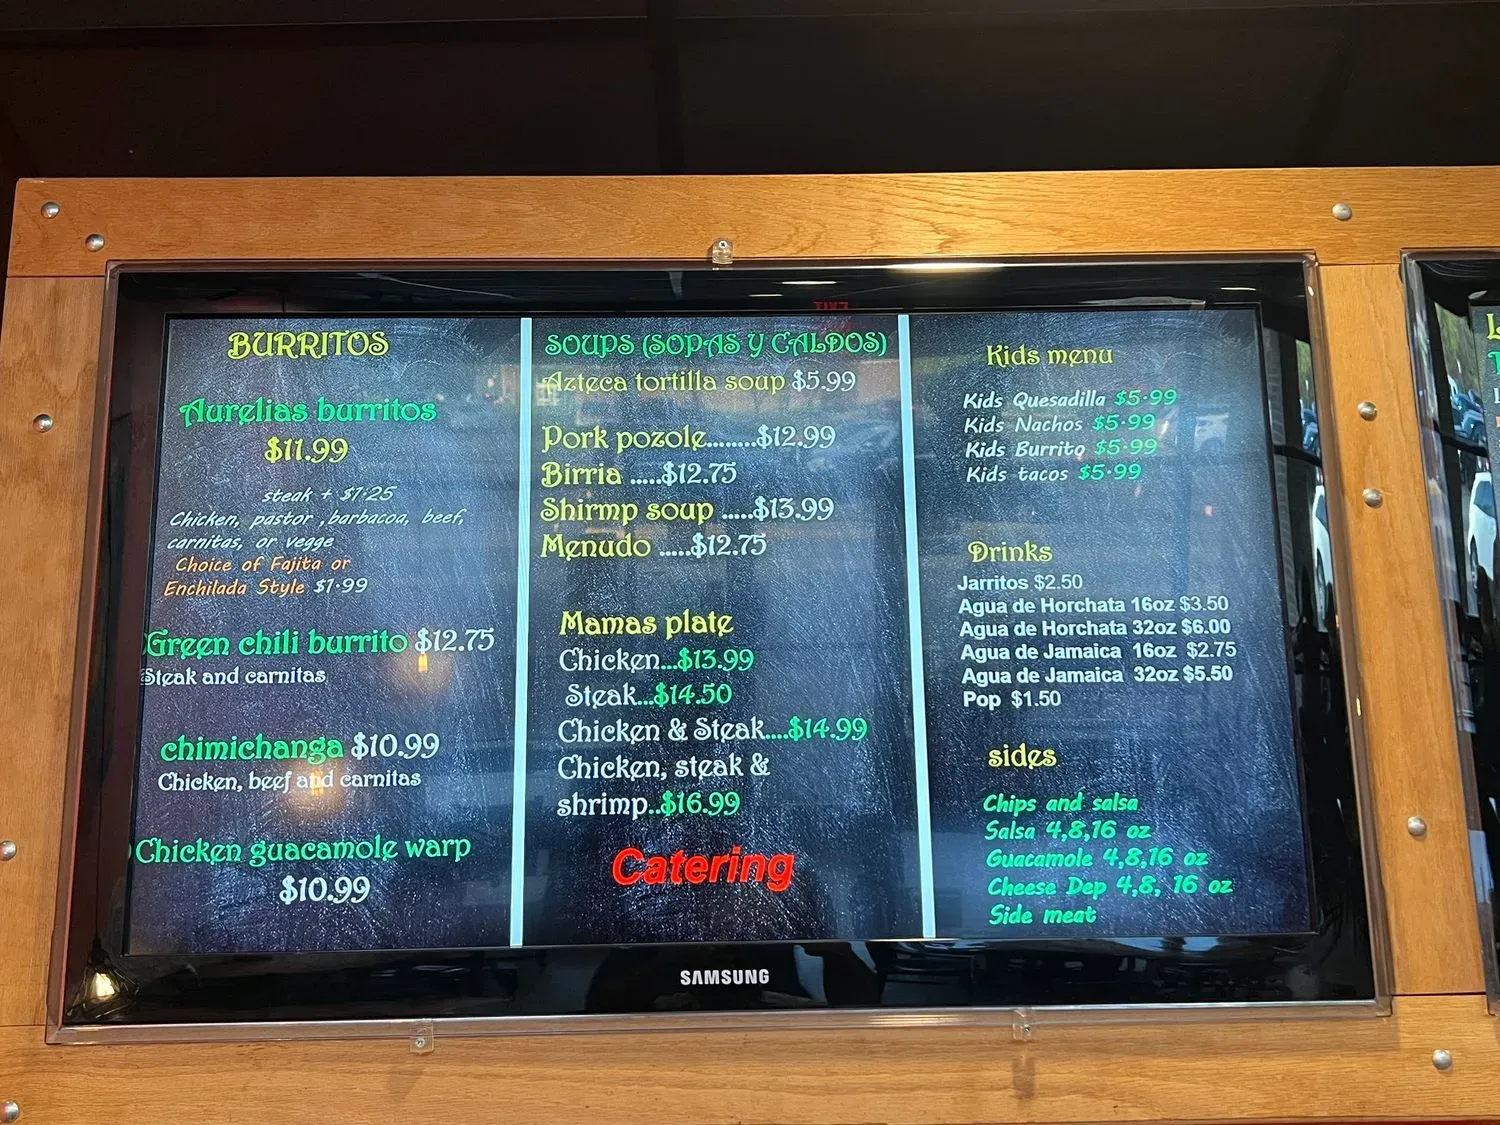 BURRITOS
Aurelias burritos
$11.99
steak + $1.25
Chicken, pastor ,barbacoa, beef,
carnitas, or vegge
Choice of Fajita or
Enchilada Style $1.99
Green chili burrito $12.75
Steak and carnitas
chimichanga $10.99
Chicken, beef and carnitas
Chicken guacamole warp
$10.99
SOUPS (SOPAS Y CALDOS)
Azteca tortilla soup $5.99
Pork pozole........$12.99
Birria .....$12.75
Shirmp soup .....$13.99
Menudo .....$12.75
Mamas plate
Chicken...$13.99
Steak...$14.50
Chicken & Steak....$14.99
Chicken, steak &
shrimp..$16.99
Catering
Kids menu
Kids Quesadilla $5.99
Kids Nachos $5.99
Kids Burrito $5.99
Kids tacos $5.99
Drinks
Jarritos $2.50
Agua de Horchata 16oz $3.50
Agua de Horchata 32oz $6.00
Agua de Jamaica 16oz $2.75
Agua de Jamaica 32oz $5.50
Pop $1.50
sides
Chips and salsa
Salsa 4,8,16 oz
Guacamole 4,8,16 oz
Cheese Dep 4,8, 16 oz
Side meat
SAMSUNG